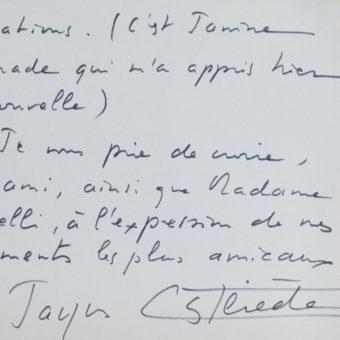 ations. (C'est Janine
nade qui m'a appris hier
ouvelle)
Je vous prie de croire,
ami, ainsi que Madame
elli, à l'expression de mes
ments les plus amicaux
Jacques